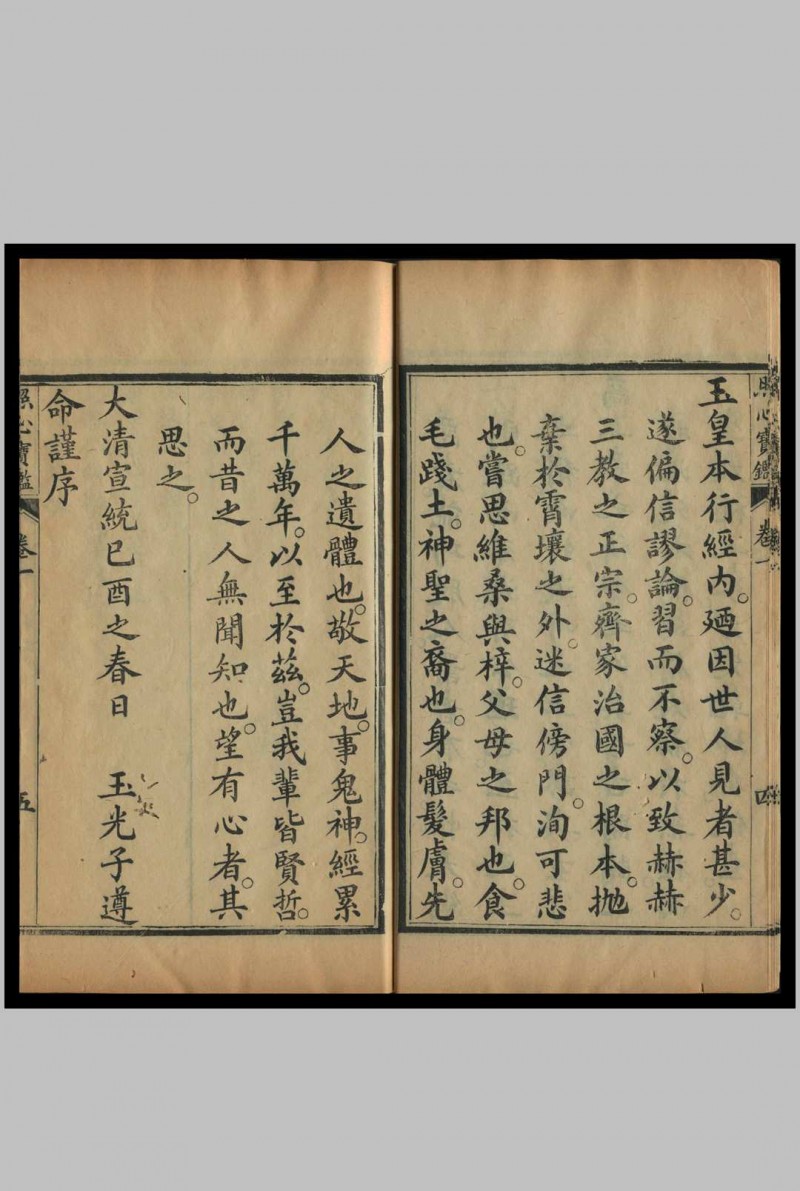 照心寶鑑 卷一 四
玉皇本行經內。廼因世人見者甚少。
遂偏信謬論。習而不察。以致赫赫
三教之正宗。齊家治國之根本。抛
棄於霄壤之外。迷信傍門。洵可悲
也。嘗思維桑與梓。父母之邦也。食
毛踐土。神聖之裔也。身體髮膚。先
人之遺體也。敬天地。事鬼神。經累
千萬年。以至於茲。豈我輩皆賢哲。
而昔之人無聞知也。望有心者。其
思之。
大清宣統己酉之春日 玉光子遵
命謹序
照心寶鑑 卷一 五